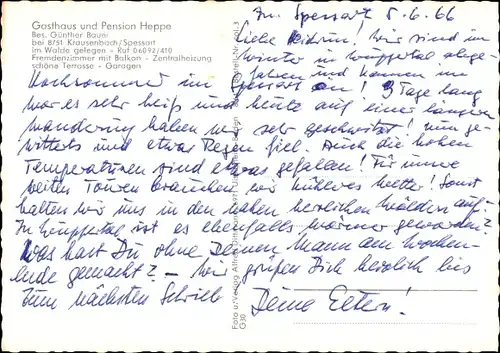 Gasthaus und Pension Heppe
Bes. Günther Bauer
bei 8751 Krausenbach/Spessart
im Walde gelegen - Ruf 06092/410
Fremdenzimmer mit Balkon - Zentralheizung
schöne Terrasse - Garagen
Im Spessart 5.6.66
Liebe Heidrun! Wir sind im
Winter in Wuppertal abge-
fahren und kamen im
Hochsommer im Spessart an! 3 Tage lang
war es sehr heiß und heute auf einer längeren
Wanderung haben wir sehr geschwitzt! nun ge-
witterts und etwas Regen fiel. Auch die hohen
Temperaturen sind etwas gefallen! Für unsre
weiten Touren brauchen wir kühleres Wetter! Sonst
halten wir uns in den nahen herrlichen Wäldern auf.
In Wuppertal ist es ebenfalls wärmer geworden?
Was hast Du ohne Deinen Mann am Wochen-
ende gemacht? - Wir grüßen Dich herzlich bis
zum nächsten Schrieb
Deine Eltern!
Foto u. Verlag
G30